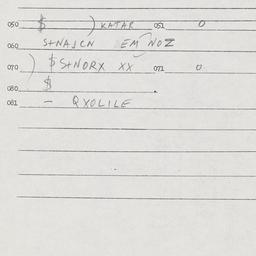 050 $ ) KATAR 051 0
060 S+NAJCN EM NOZ
070 ) $ S+NORX XX 071 0
080 $
081 - QXOLILE